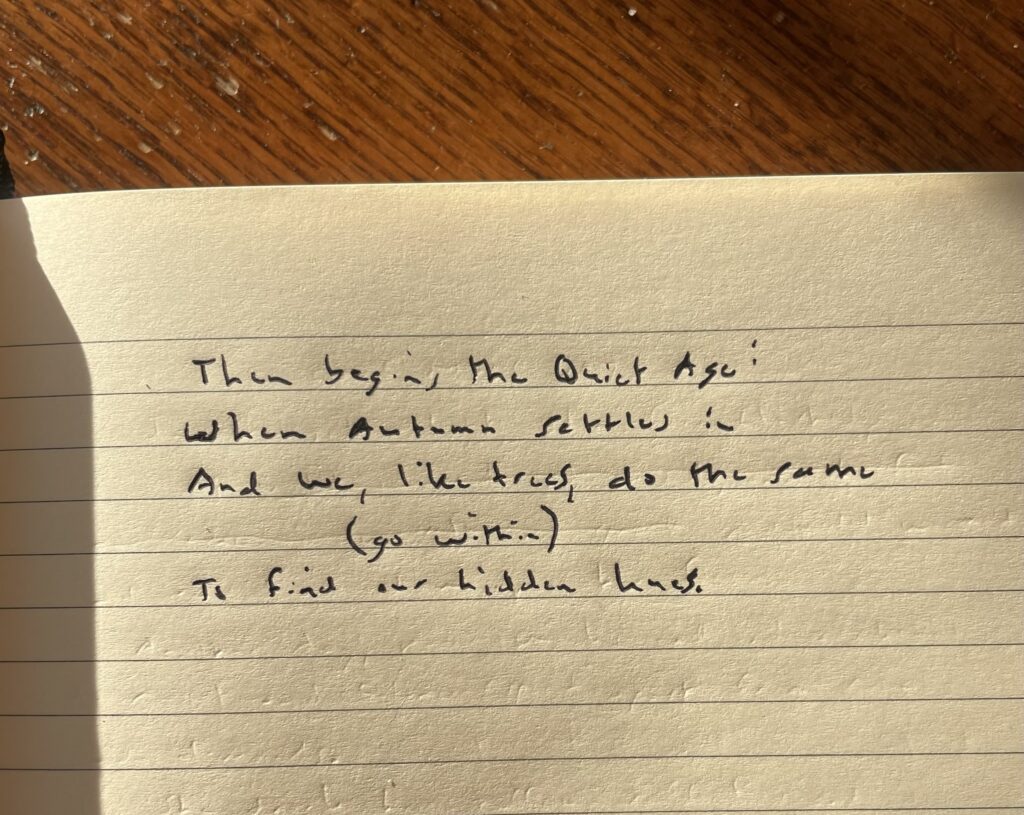 Then begins the Quiet Age:
When Autumn settles in
And we, like trees, do the same
(go within)
To find our hidden hues.